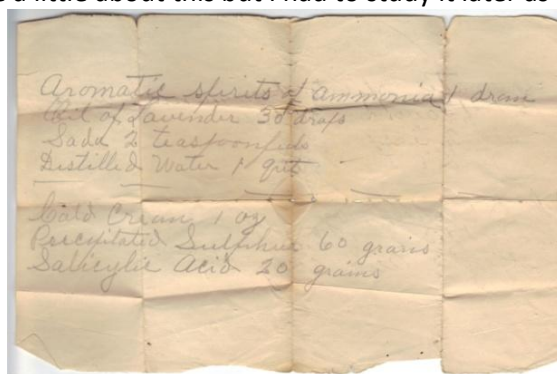 a little about this but I had to study it later as
Aromatic spirits of ammonia 1 dram
Oil of Lavender 30 drops
Soda 2 teaspoonfuls
Distilled Water 1 qrt
Cold Cream 1 oz
Precipitated Sulphur 60 grains
Salicylic Acid 20 grains